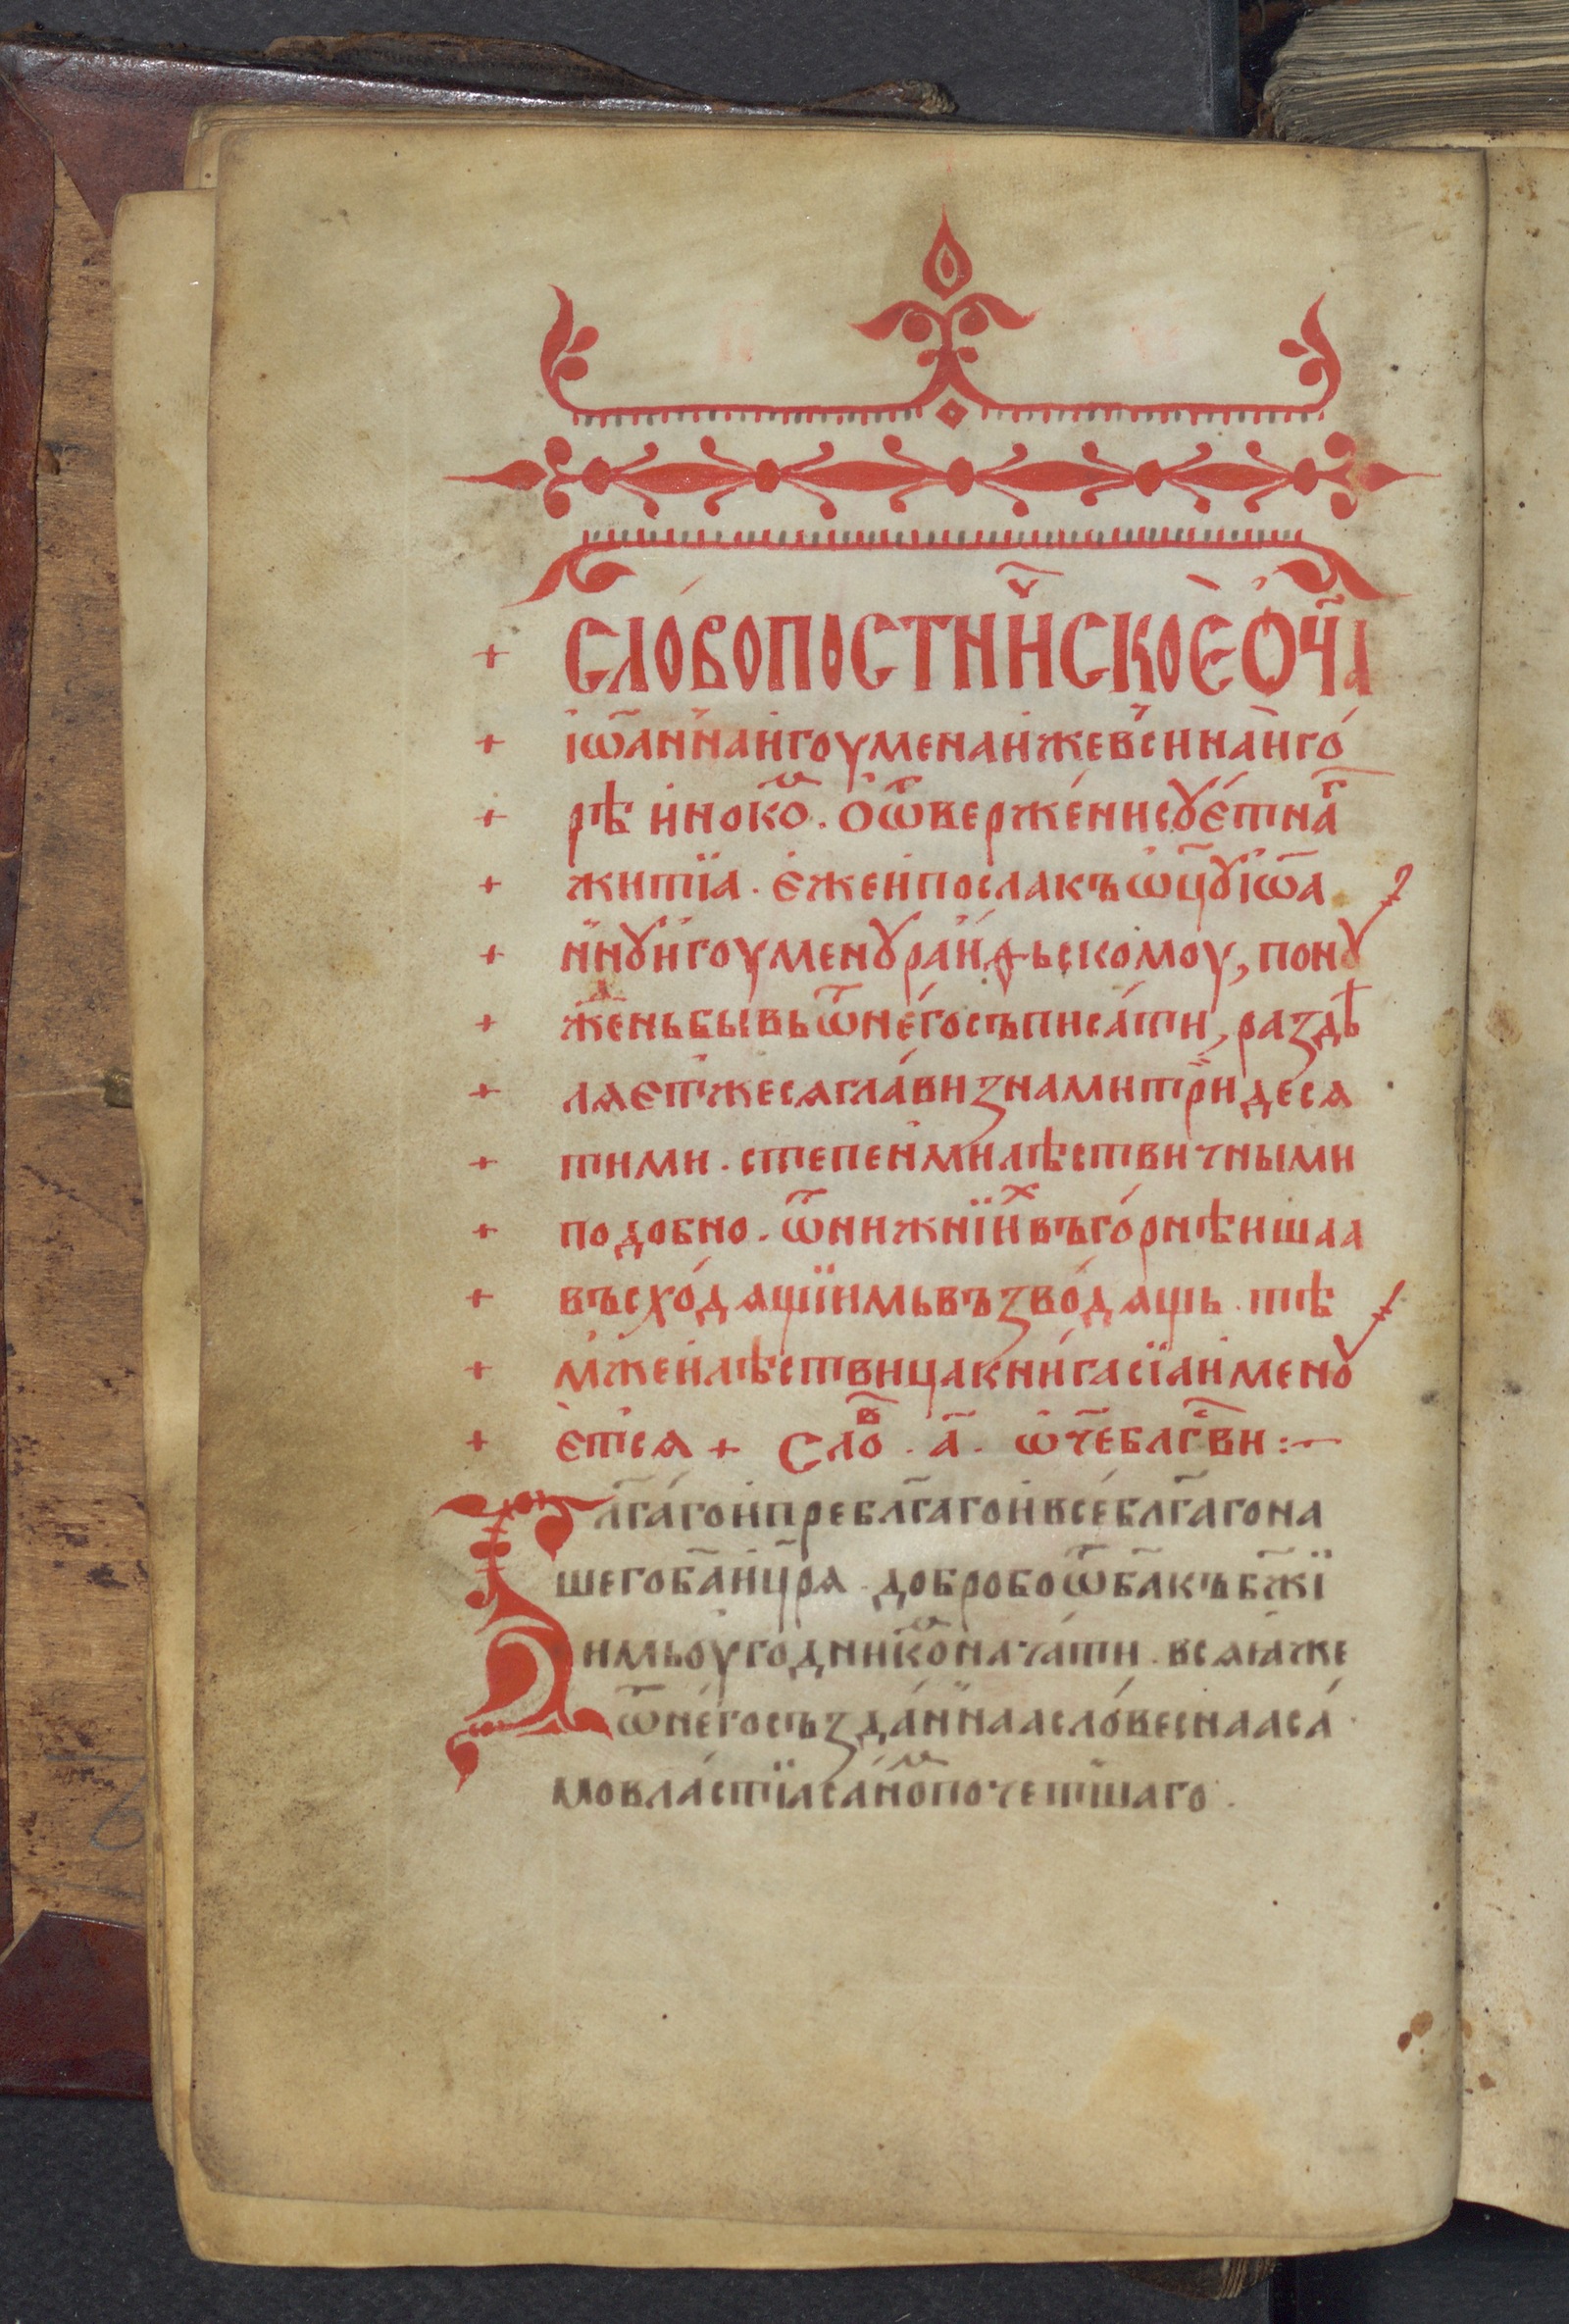 + СЛО́ВОПОСТНИ́ЧСКОЕ Ѻ҆Ч҃А
+ і҆ѡ҃ан꙽наи҆гоуменаи҆жев꙽синаи҆го́
+ рѣ и҆нокѡⷨ. оѿверже́нисꙋ́е҆тнаⷢ҇
+ житїа. е҆жеи҆послакъѡ҆ц҃ꙋі҆ѡ҃а
+ н꙽нꙋи҆гоуменꙋраи҆ѳьскомоу, понꙋ
+ женьбывьѿне́госъписа́ти, раздѣ
+ лѧет꙽жесѧгла́визнамитри́десѧ
+ тими. степеньмилѣствичными
+ подобно. ѿнижнїиⷯвъго́рнѣишаа
+ въсхо́дѧщїимьвъзво́дѧщь. тѣ
+ м꙽жеи҆лѣствицакни́гасїаи҆менꙋ
+ е҆т꙽сѧ + Слоⷡ҇. а҃. ѡ҆ч҃еблⷭ҇ви:~
Бл҃га́гои҆пребл҃гагои҆всебл҃га́гона
шегоб҃аи҆цр҃ѧ. добробоѿб҃акъбж҃їи
имьоу҆годникѡⷨнача́ти. всѧꙗ҆же
ѿне́госъзда́н꙽наасло́веснааса́
мовла́стїасаноⷨпочет꙽шаго.